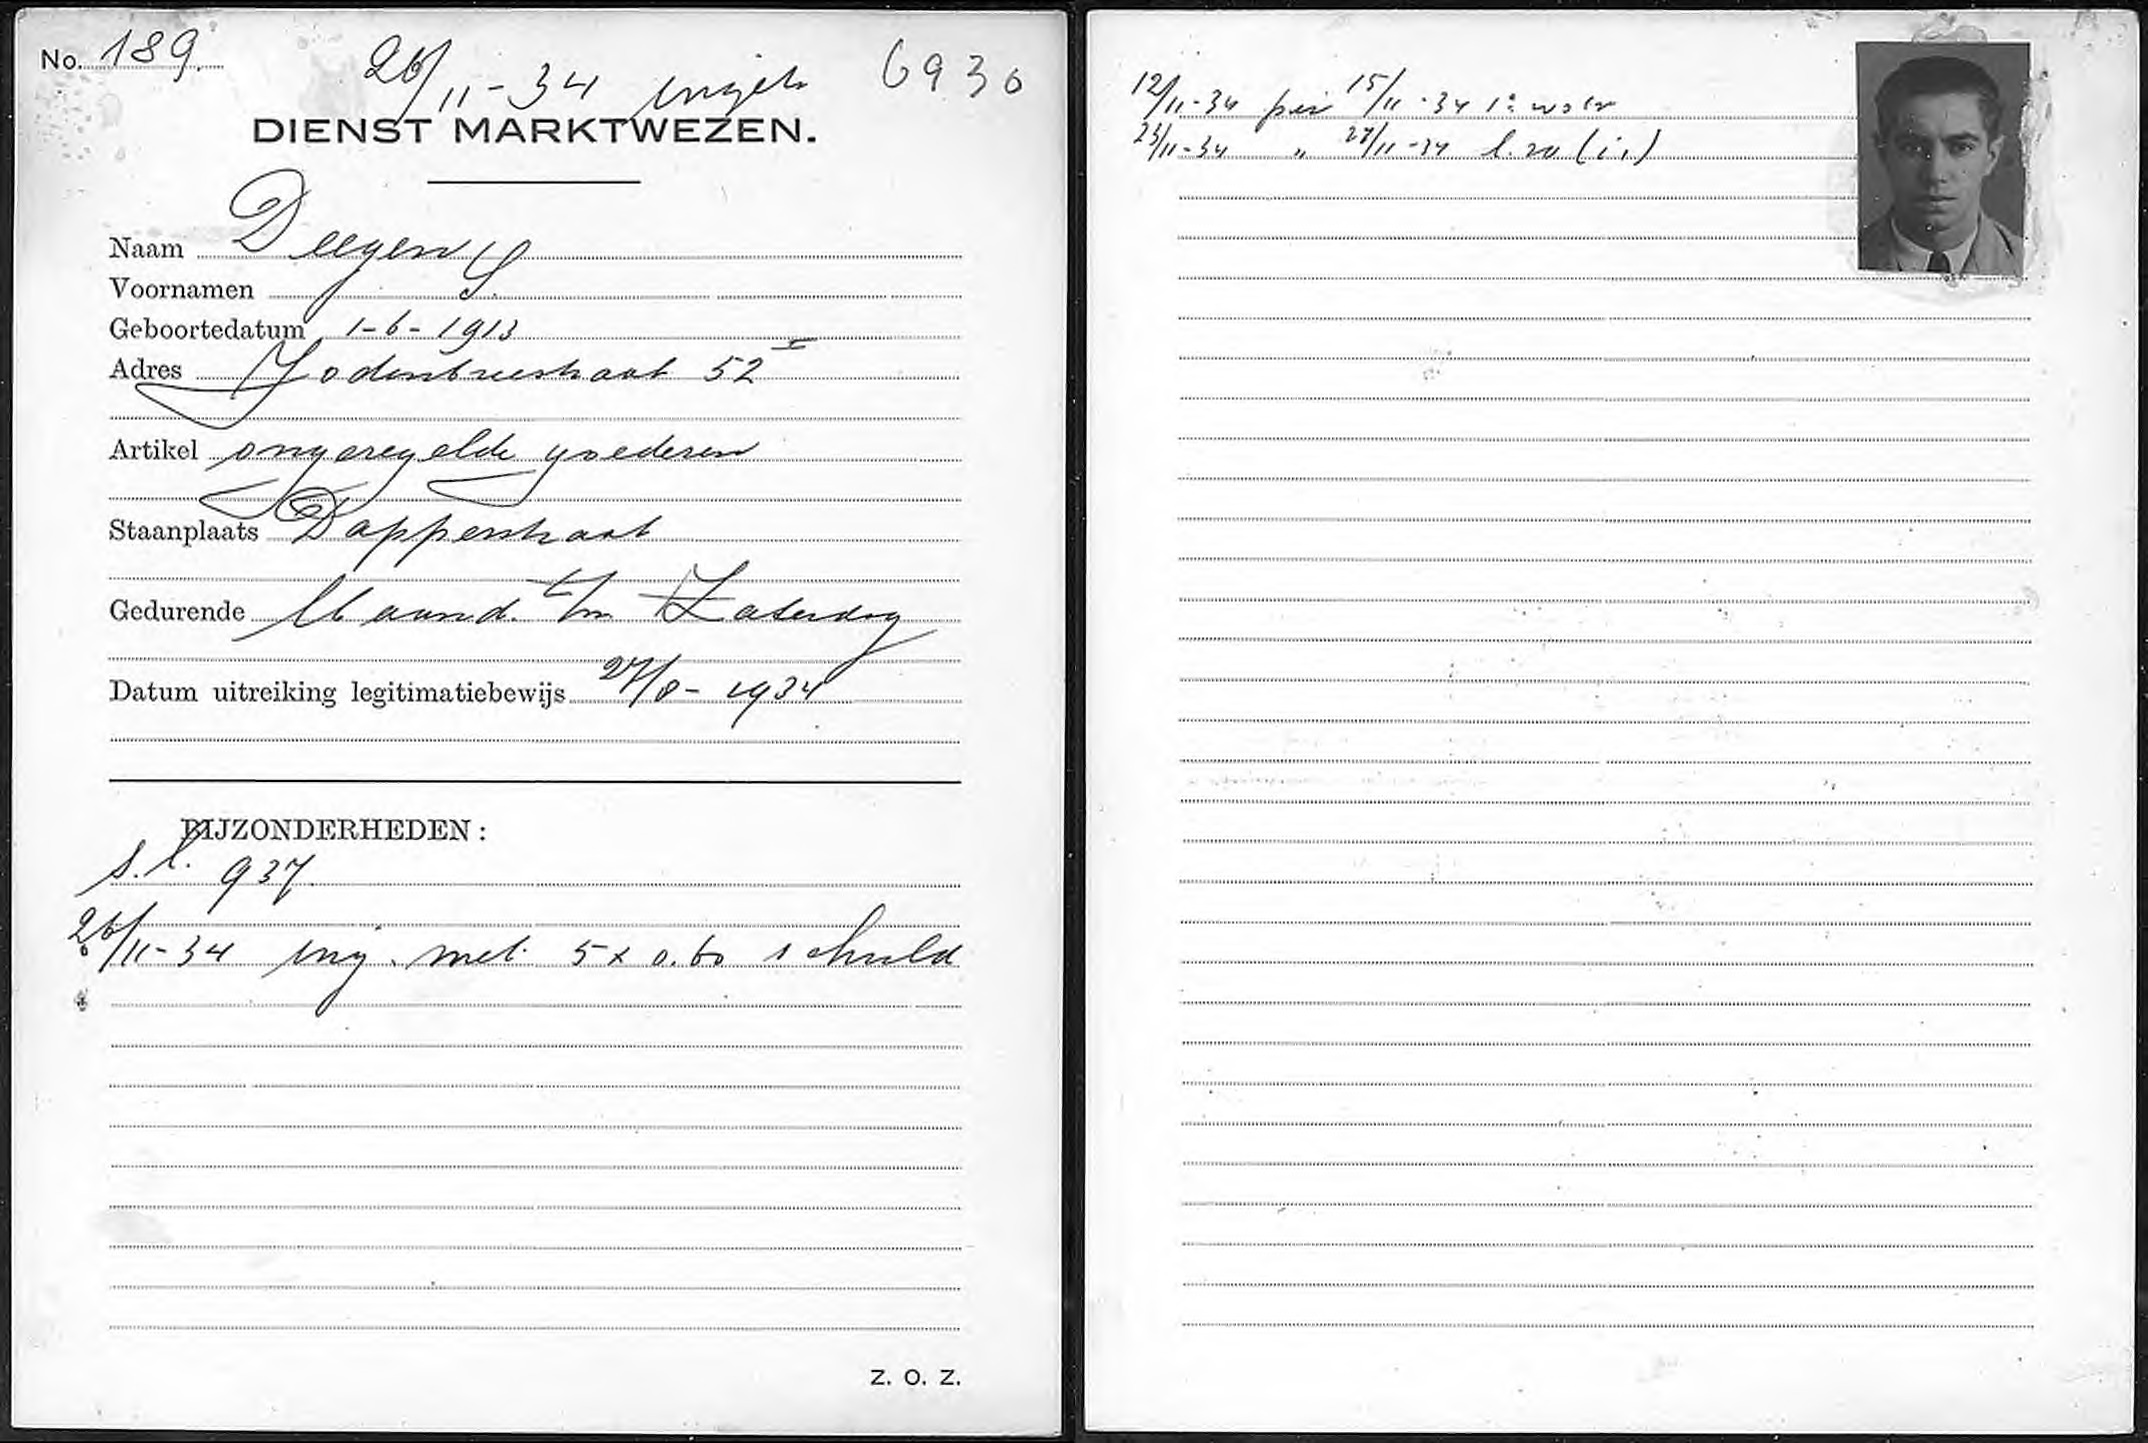 No. 189.
26/11-34 6930
DIENST MARKTWEZEN.
Naam Deegen
Voornamen S.
Geboortedatum 1-6-1913
Adres Jodenbreestraat 52 I
Artikel ongeregelde goederen
Staanplaats Dapperstraat
Gedurende Maand. t/m Zaterdag
Datum uitreiking legitimatiebewijs 27/8-1934
BIJZONDERHEDEN:
s.l. 937
26/11-34 ing. met 5 x 0.60 schuld
Z. O. Z.
12/11-34 per 15/11-34 1e
23/11-34 „ 27/11-34